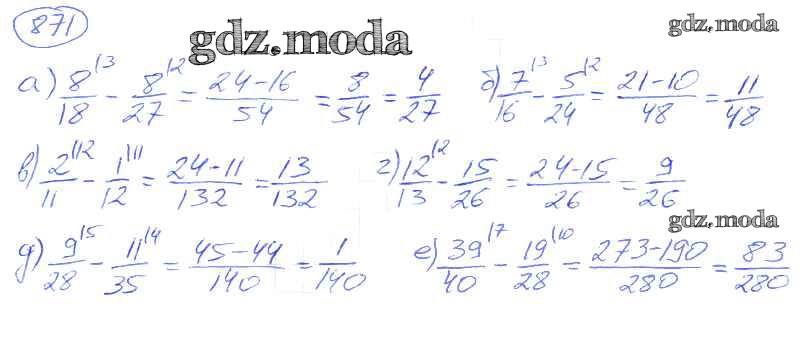 871
gdz.moda
gdz.moda
а) 8^3/18 - 8^2/27 = 24-16/54 = 8/54 = 4/27 б) 7^3/16 - 5^2/24 = 21-10/48 = 11/48
в) 2^12/11 - 1^11/12 = 24-11/132 = 13/132 г) 12^2/13 - 15/26 = 24-15/26 = 9/26
gdz.moda
д) 9^5/28 - 11^4/35 = 45-44/140 = 1/140 е) 39^7/40 - 19^10/28 = 273-190/280 = 83/280